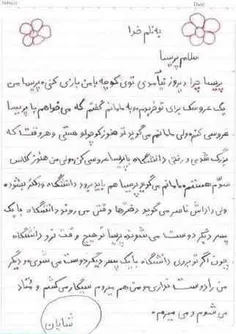 به نام خدا
سلام پریسا
پریسا چرا دیروز نیامدی توی کوچه با من بازی کنی. پریسا من
یک عروسک برای تو خریدم. به مامانم گفتم که می‌خواهم با پریسا
عروسی کنم ولی مامانم می‌گوید تو هنوز کوچولو هستی و هر وقت که
بزرگ شدی و رفتی دانشگاه با پریسا عروسی کن ولی من هنوز کلاس
سوم هستم. مامانم می‌گوید پریسا هم باید برود دانشگاه و دکتر بشود
ولی داداش ناصر می‌گوید دخترها وقتی می‌روند دانشگاه با یک
پسر دیگر دوست می‌شوند. پریسا تو هیچ وقت نرو دانشگاه
چون اگر تو بری دانشگاه با یک پسر دیگر دوست می‌شوی و دیگر
من را دوست نداری و من هم میروم سیگار می‌کشم و معتاد
می‌شوم و می‌میرم.
شایان